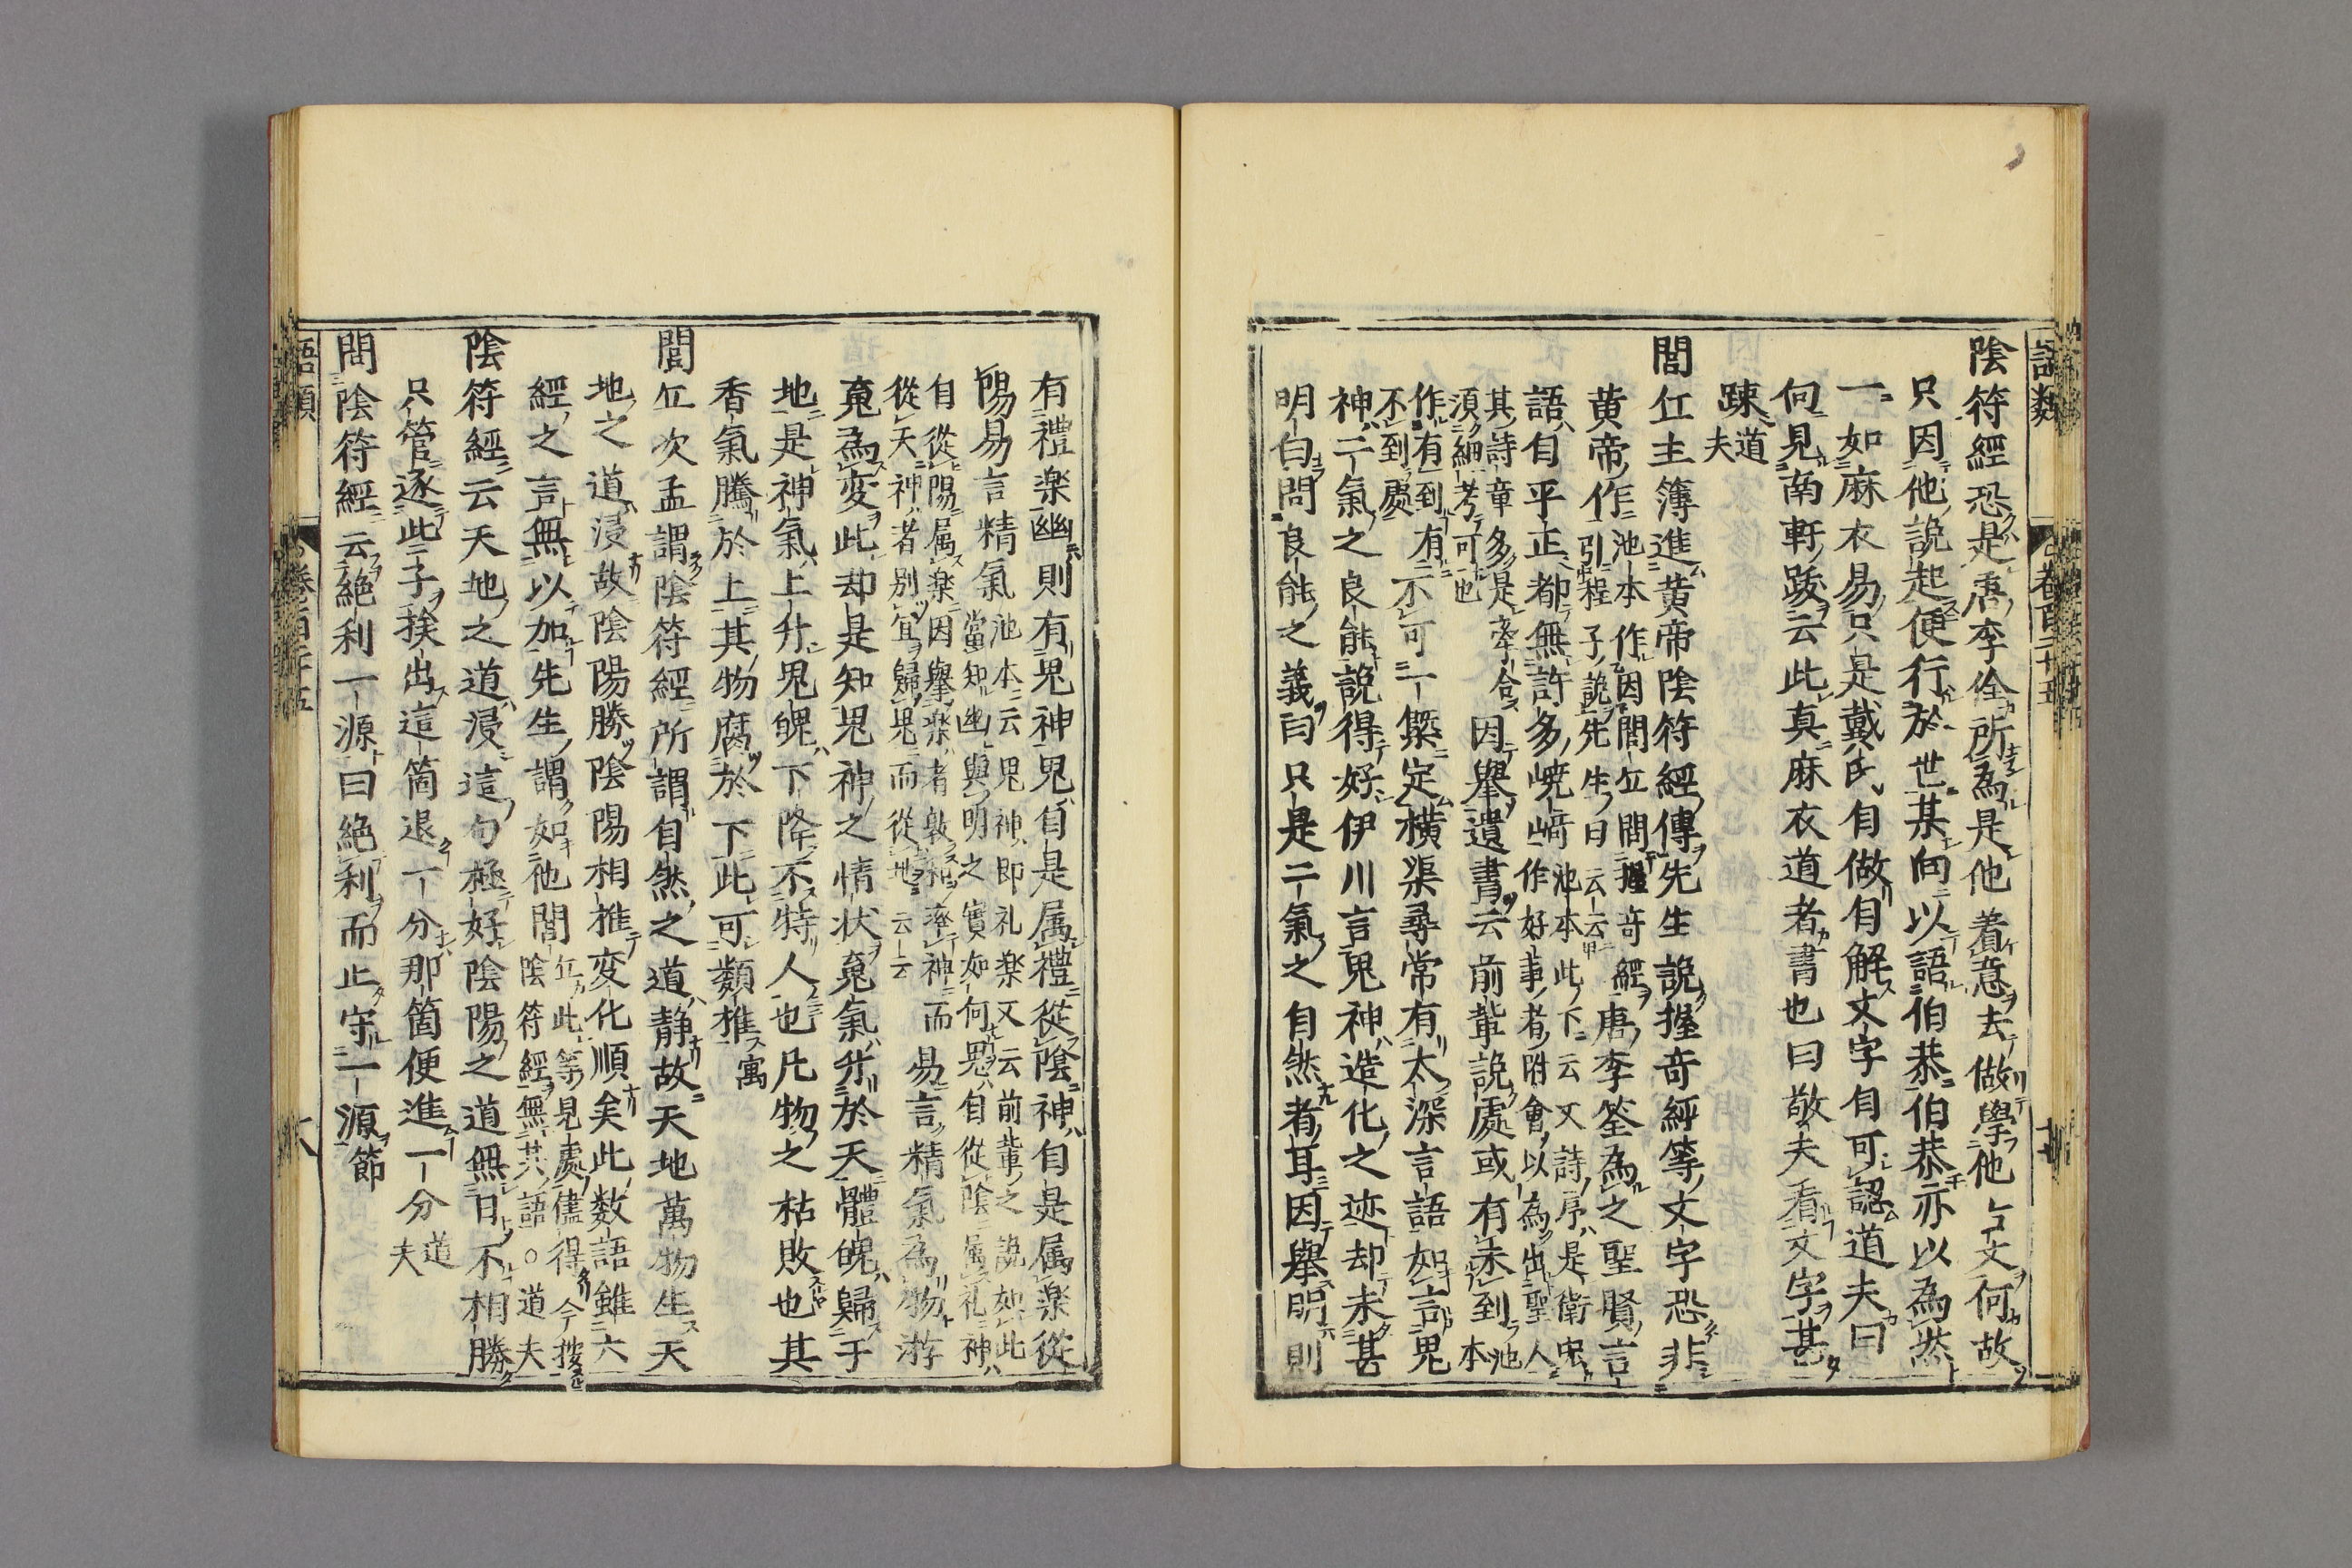 語類 卷百二十五
陰符經恐是唐李佺所為是他着意去做學他古文何故
只因他說起便行於世某向以語伯恭伯恭亦以為然
一如麻衣易只是戴氏自做自解文字自可認道夫曰
向見南軒跋云此真麻衣道者書也曰敬夫看文字甚
踈道夫
閭丘主簿進黃帝陰符經傳先生說握奇經等文字恐非
黃帝作池本作因閭丘問握奇經引程子說先生曰云云唐李筌為之聖賢言
語自平正都無許多嶢﨑池本此下云又詩序是衛宏作好事者附會以為出聖人
其詩章多是牽合須細考可也因舉遺書云前輩說處或有未到池本
作有到有不到處不可一槩定橫渠尋常有太深言語如言鬼
神二氣之良能說得好伊川言鬼神造化之迹却未甚
明白問良能之義曰只是二氣之自然者耳因舉明則
有禮樂幽則有鬼神鬼自是属禮從陰神自是属樂從
陽易言精氣池本云鬼神即礼樂又云前輩之說如此當知幽與明之實如何鬼自從陰属礼神
自從陽属樂因舉樂者敦和率神而從天神者別宜歸鬼而從地云云易言精氣為物游
䰟為変此却是知鬼神之情状䰟氣升於天體魄歸于
地是神氣上升鬼魄下降不特人也凡物之枯敗也其
香氣騰於上其物腐於下此可類推寓
閭丘次孟謂陰符經所謂自然之道静故天地萬物生天
地之道浸故陰陽勝陰陽相推変化順矣此数語雖六
經之言無以加先生謂如他閭丘此等見處儘得今按陰符經無其語○道夫
陰符經云天地之道浸這句極好陰陽之道無日不相勝
只管逐些子挨出這箇退一分那箇便進一分道夫
問陰符經云絶利一源曰絶利而止守一源節
語類 卷百二十五 十八